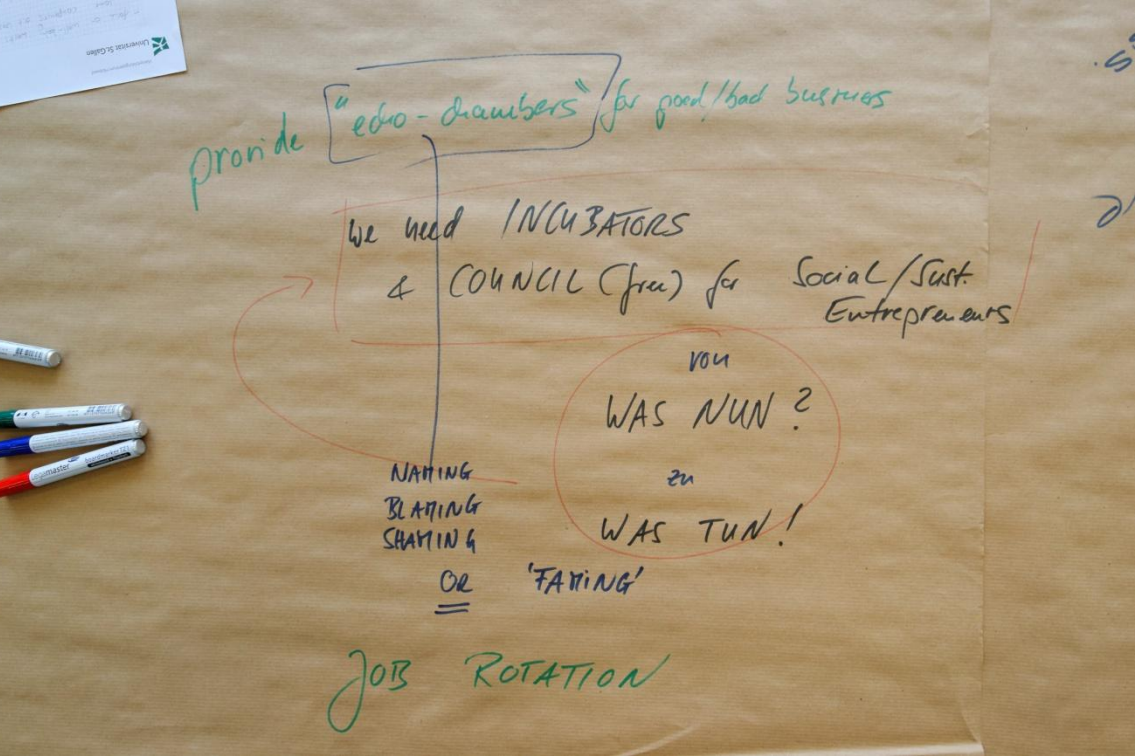 Universität St.Gallen
provide "echo-chambers" for good/bad business
we need INCUBATORS
& COUNCIL (free) for Social/Sust.
Entrepreneurs
von
WAS NUN?
zu
WAS TUN!
NAMING
BLAMING
SHAMING
OR 'FAMING'
JOB ROTATION